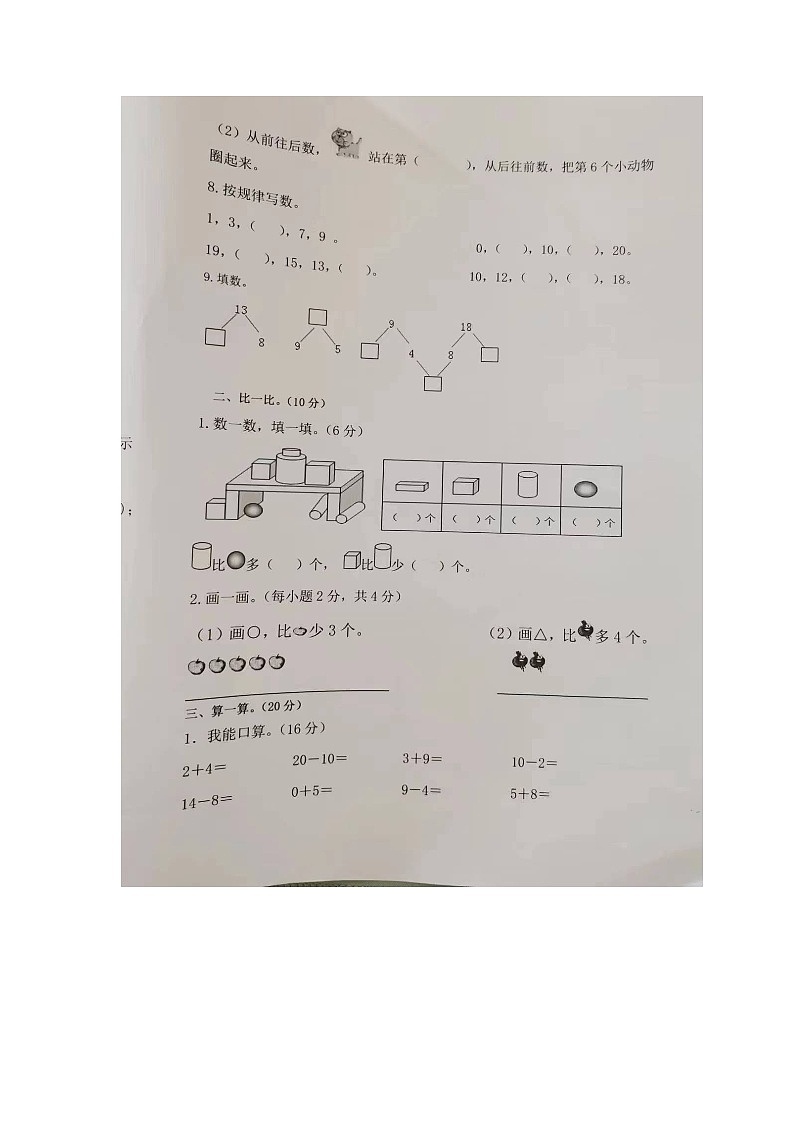 （2）从前往后数， 站在第（ ），从后往前数，把第 6 个小动物
圈起来。
8.按规律写数。
1，3，（ ），7，9 。
0，（ ），10，（ ），20。
19，（ ），15，13，（ ）。
10，12，（ ），（ ），18。
9.填数。
13
8
9 5
9
4
18
8
二、比一比。（10 分）
1.数一数，填一填。（6 分）
（ ）个 （ ）个 （ ）个 （ ）个
比 多（ ）个， 比 少（ ）个。
2.画一画。（每小题 2 分，共 4 分）
（1）画○，比 少 3 个。
（2）画△，比 多 4 个。
三、算一算。（20 分）
1．我能口算。（16 分）
2＋4＝ 20－10＝ 3＋9＝ 10－2＝
14－8＝ 0＋5＝ 9－4＝ 5＋8＝
示
）；